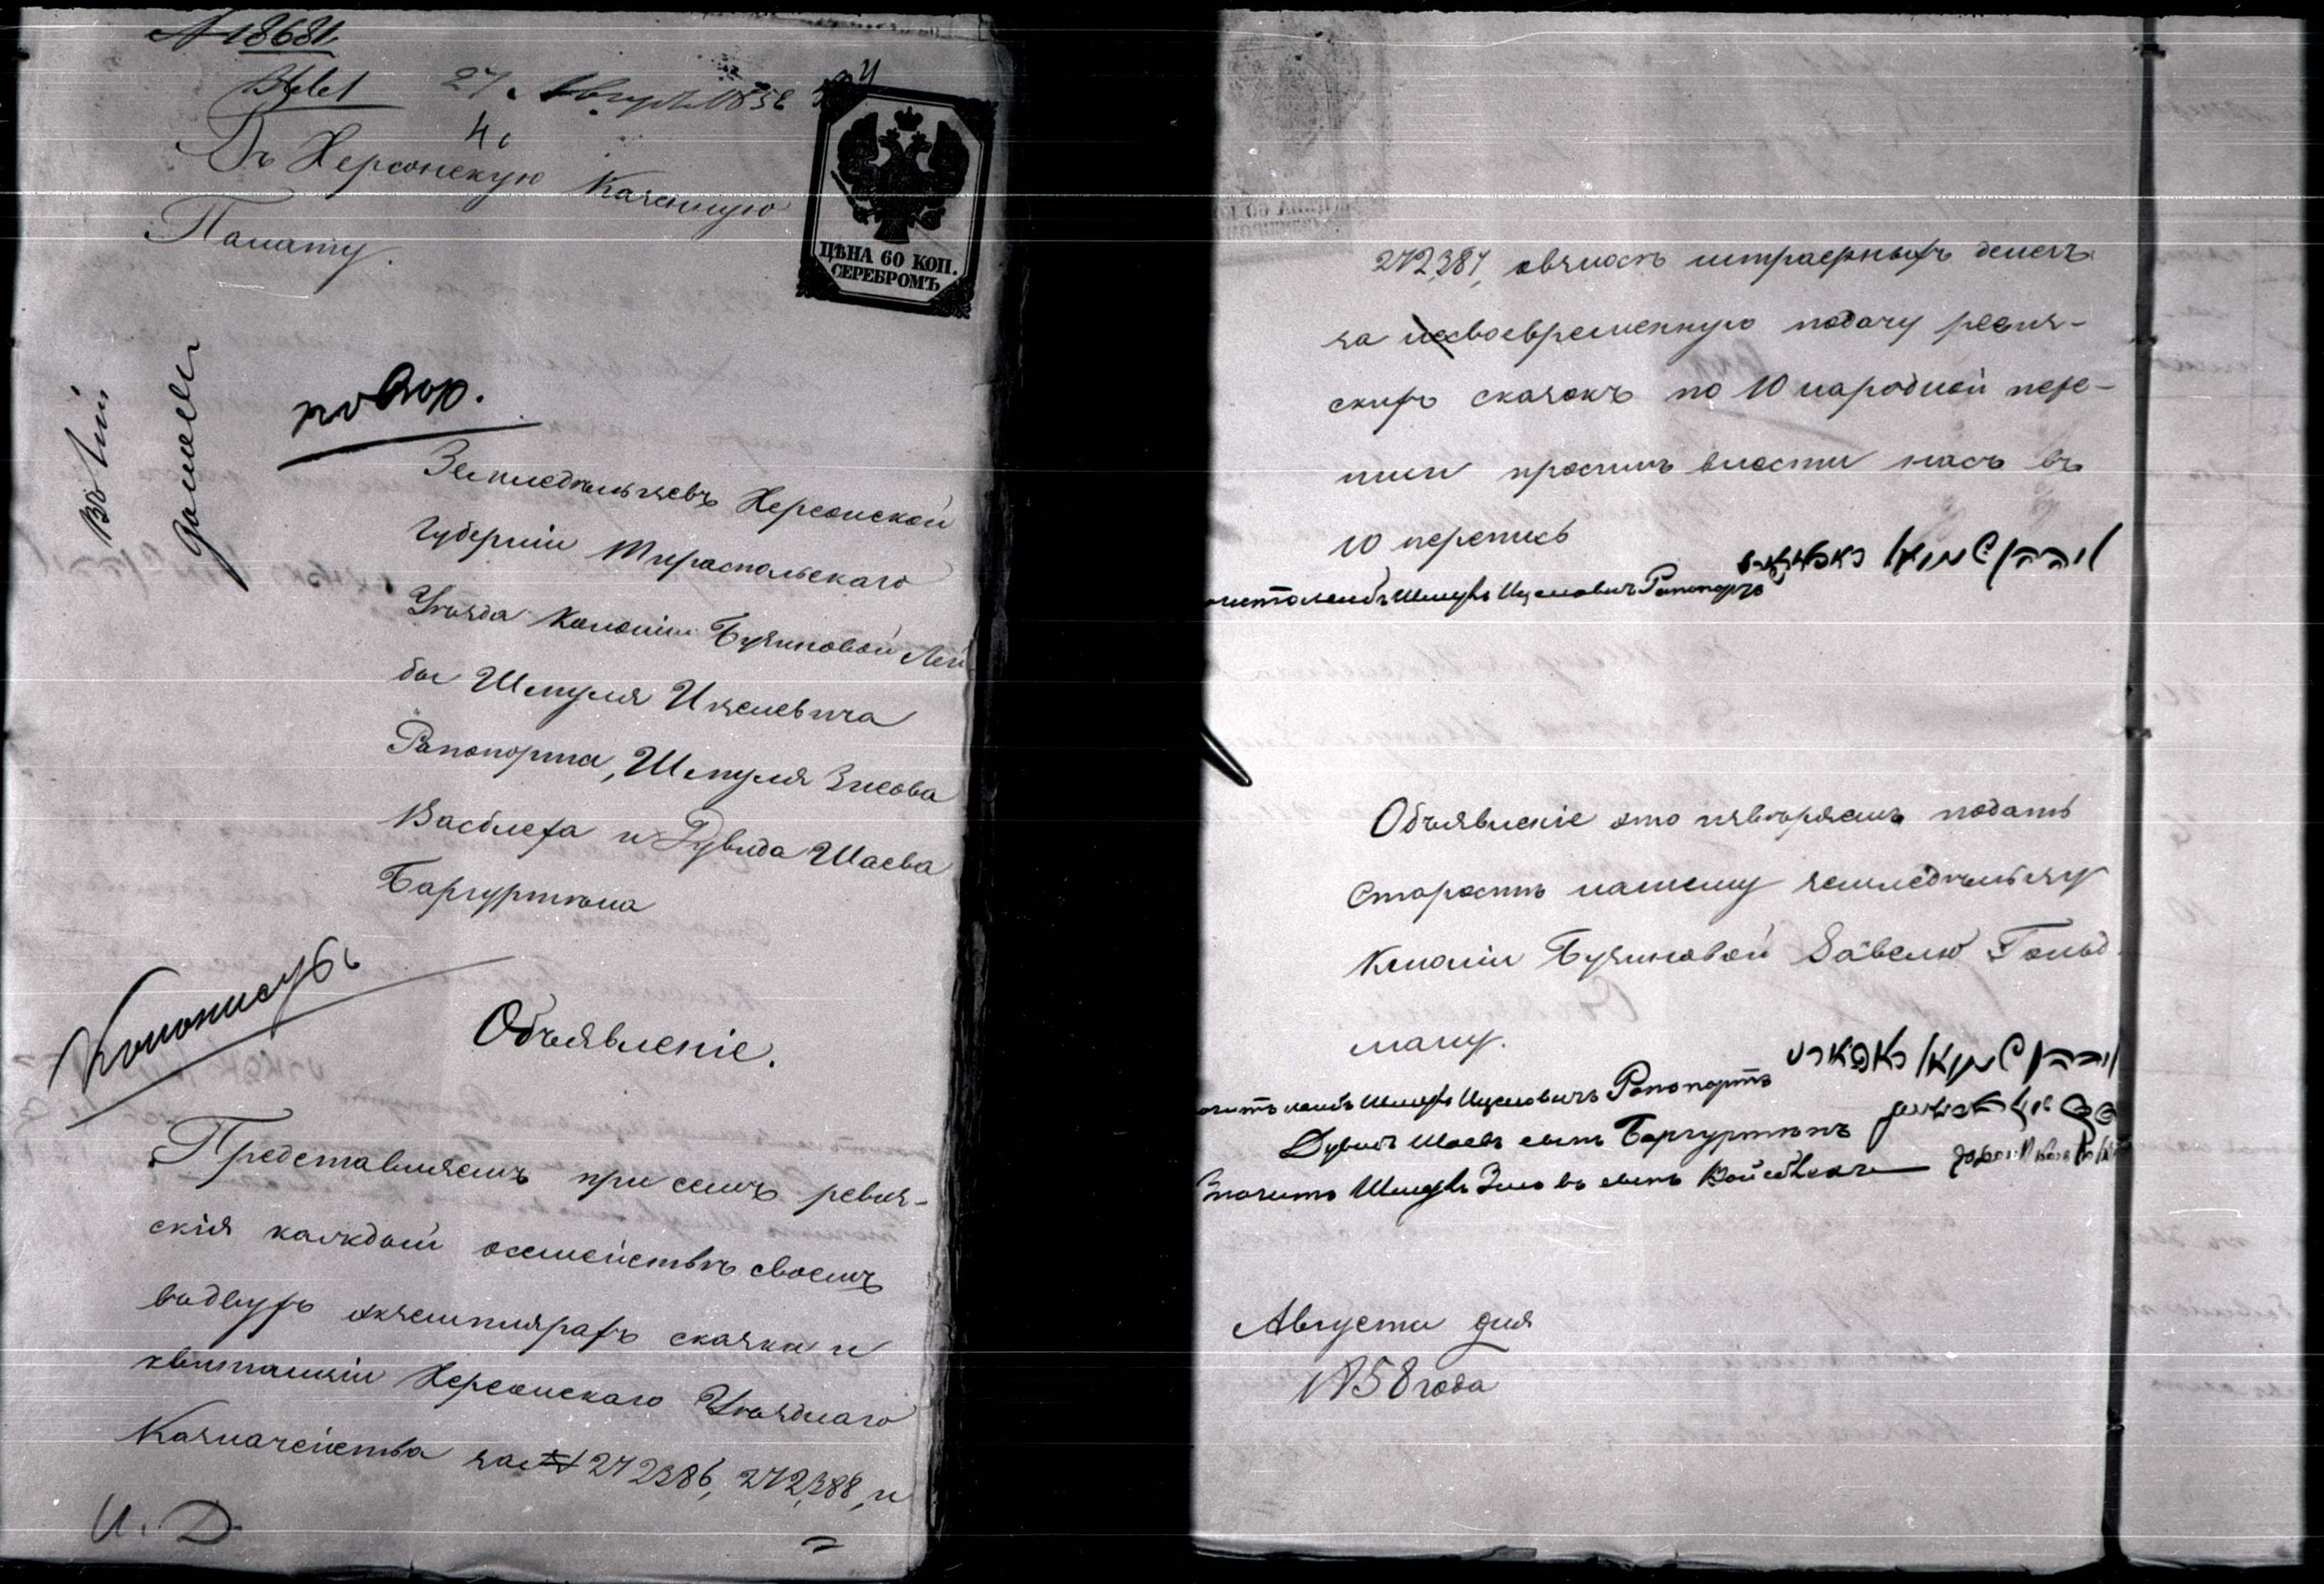 № 18681.
27 Августа 1858
Въ Херсонскую Казенную
Палату.
ЦѢНА 60 КОП.
СЕРЕБРОМЪ
повѣр.
Земледѣльцевъ Херсонской
Губерніи Тираспольскаго
Уѣзда Колоніи Бузиновой Лей
бы Шмуля Ицелевича
Рапопорта, Шмуля Зисова
и Дувида Шаева
Объявленіе.
Представляемъ при семъ ревиз-
скія каждый осемействѣ своемъ
вдвухъ экземплярахъ сказки и
квитанціи Херсонскаго Уѣзднаго
Казначейства за № 272386, 272388, и
272387, овзносѣ штрафныхъ денегъ
за несвоевременную подачу ревиз-
скихъ сказокъ по 10 народной пере-
писи просимъ внести насъ въ
10 перепись
Шмуль Ицеловичъ Рапопортъ
Объявленіе это ввѣряемъ подать
Старостѣ нашему земледѣльцу
Колоніи Бузиновой Савелю Гольд
ману.
Шмуль Ицеловичъ Рапопортъ
Дувидъ Шаевъ сынъ
Значитъ Шмуль Зисовъ сынъ
Августа дня
1858 года